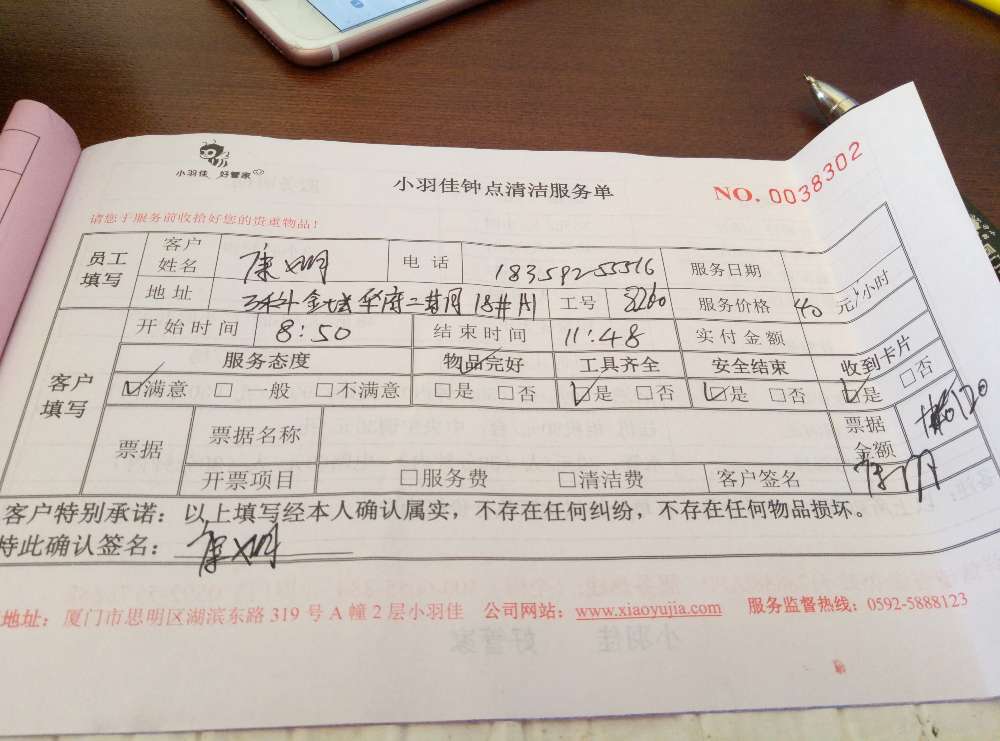 小羽佳 好管家
小羽佳钟点清洁服务单
NO. 0038302
请您于服务前收拾好您的贵重物品!
员工填写 客户姓名 康 电话 18359255516 服务日期
地址 金 华府二期 18# 工号 8260 服务价格 40 元/小时
客户填写 开始时间 8:50 结束时间 11:48 实付金额
服务态度 物品完好 工具齐全 安全结束 收到卡片
☑满意 □一般 □不满意 □是 □否 ☑是 □否 ☑是 □否 ☑是 □否
票据 票据名称 票据金额 120
开票项目 □服务费 □清洁费 客户签名 康
客户特别承诺：以上填写经本人确认属实，不存在任何纠纷，不存在任何物品损坏。
特此确认签名： 康
地址：厦门市思明区湖滨东路 319 号 A 幢 2 层小羽佳 公司网站：www.xiaoyujia.com 服务监督热线：0592-5888123